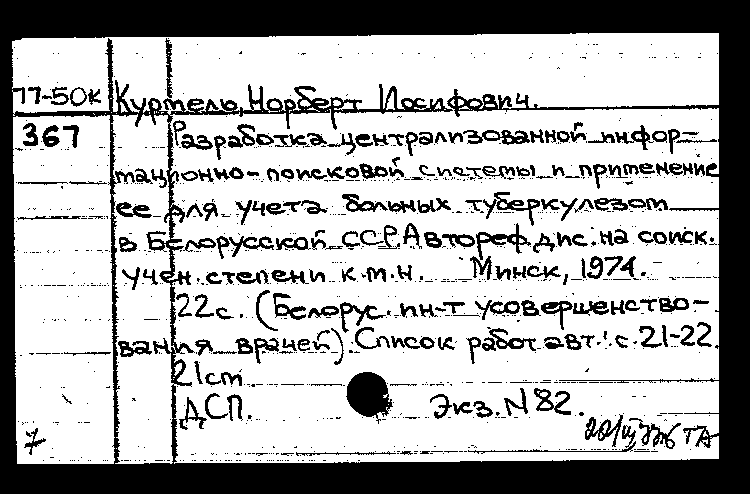 77-50к Куртелю, Норберт Иосифович.
367 Разработка централизованной инфор-
мационно-поисковой системы и применение
ее для учета больных туберкулезом
в Белорусской ССР. Автореф. дис. на соиск.
учен. степени к.м.н. Минск, 1974.
22с. (Белорус. ин-т усовершенство-
вания врачей) Список работ авт.: с. 21-22.
21см.
ДСП. Экз. N 82.
7